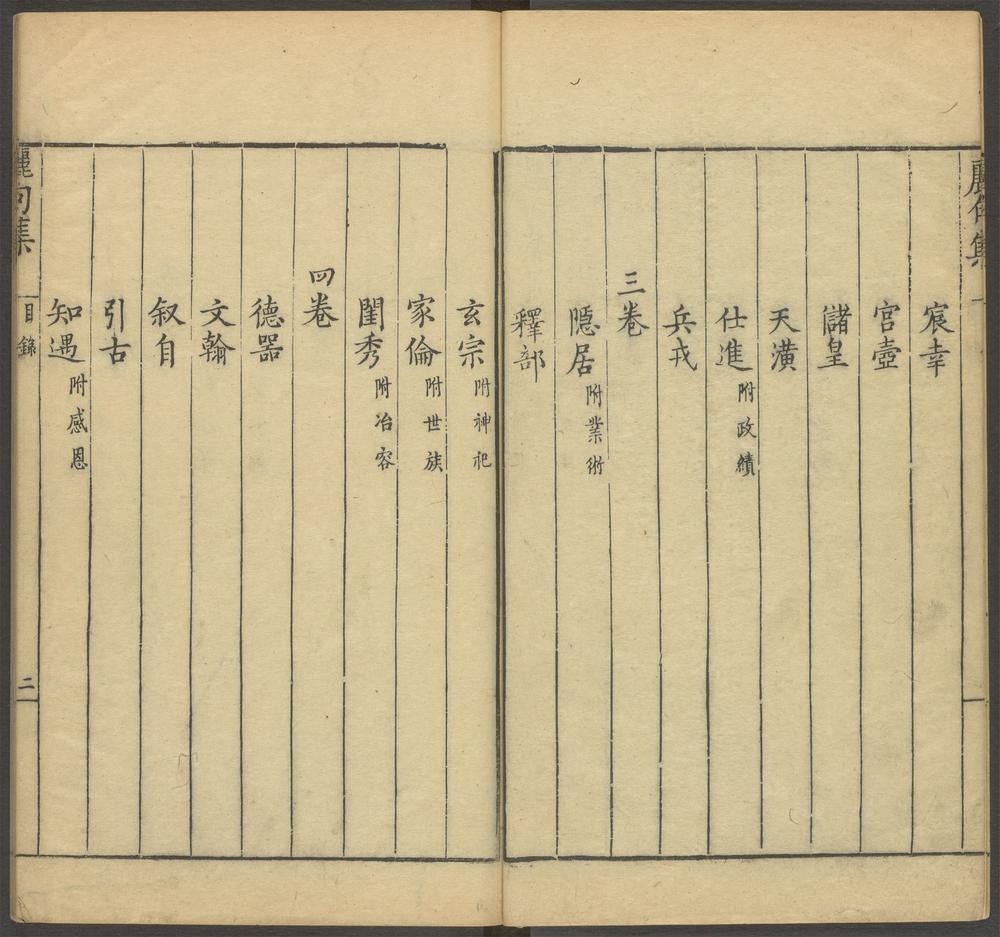 麗句集
宸幸
宮壼
儲皇
天潢
仕進 附政績
兵戎
三卷
隱居 附業術
釋部
玄宗 附神祀
家倫 附世族
閨秀 附冶容
四卷
德器
文翰
叙自
引古
知遇 附感恩
麗句集 目錄 二